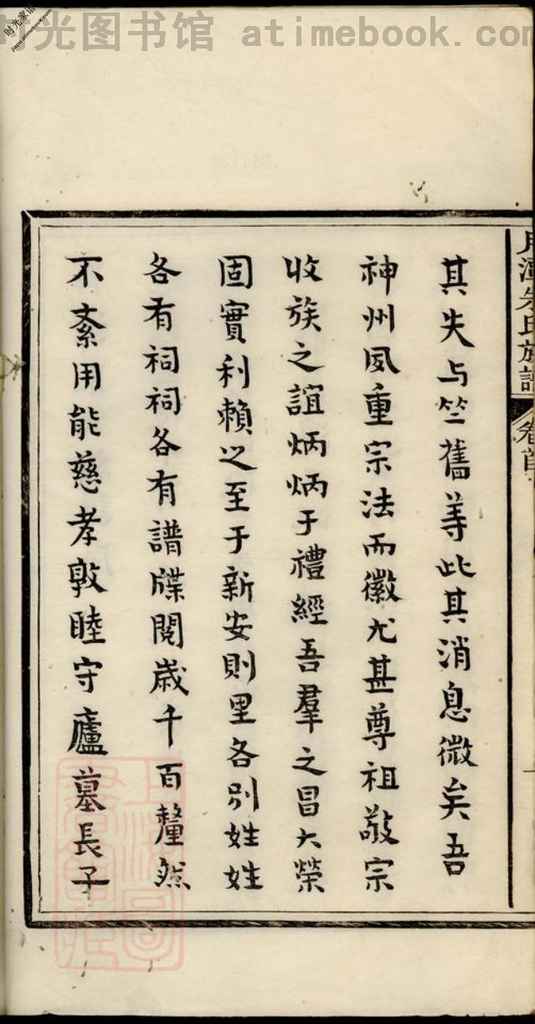 时光图书馆 atimebook.com
月潭朱氏族譜 卷首
其失与竺舊等此其消息微矣吾
神州風重宗法而徽尤甚尊祖敬宗
收族之誼炳炳于禮經吾羣之昌大榮
固實利賴之至于新安則里各别姓姓
各有祠祠各有譜牒閱歲千百釐然
不紊用能慈孝敦睦守廬墓長子